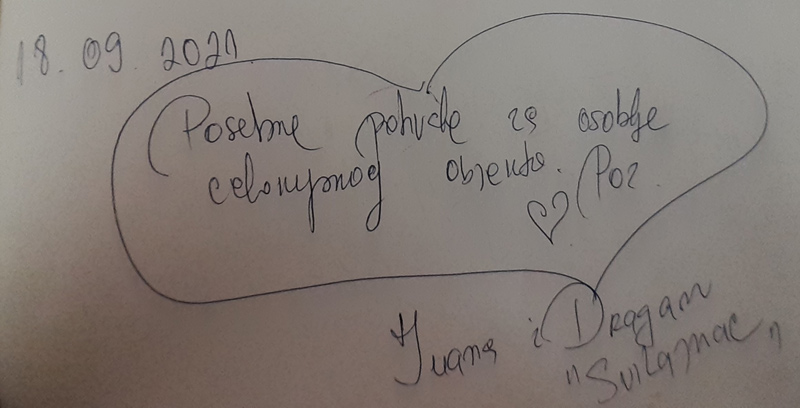 18.09.2021
Posebne pohvale za osoblje
celokupnog objekta. Poz.
Ivana i Dragan
"Svilajnac"